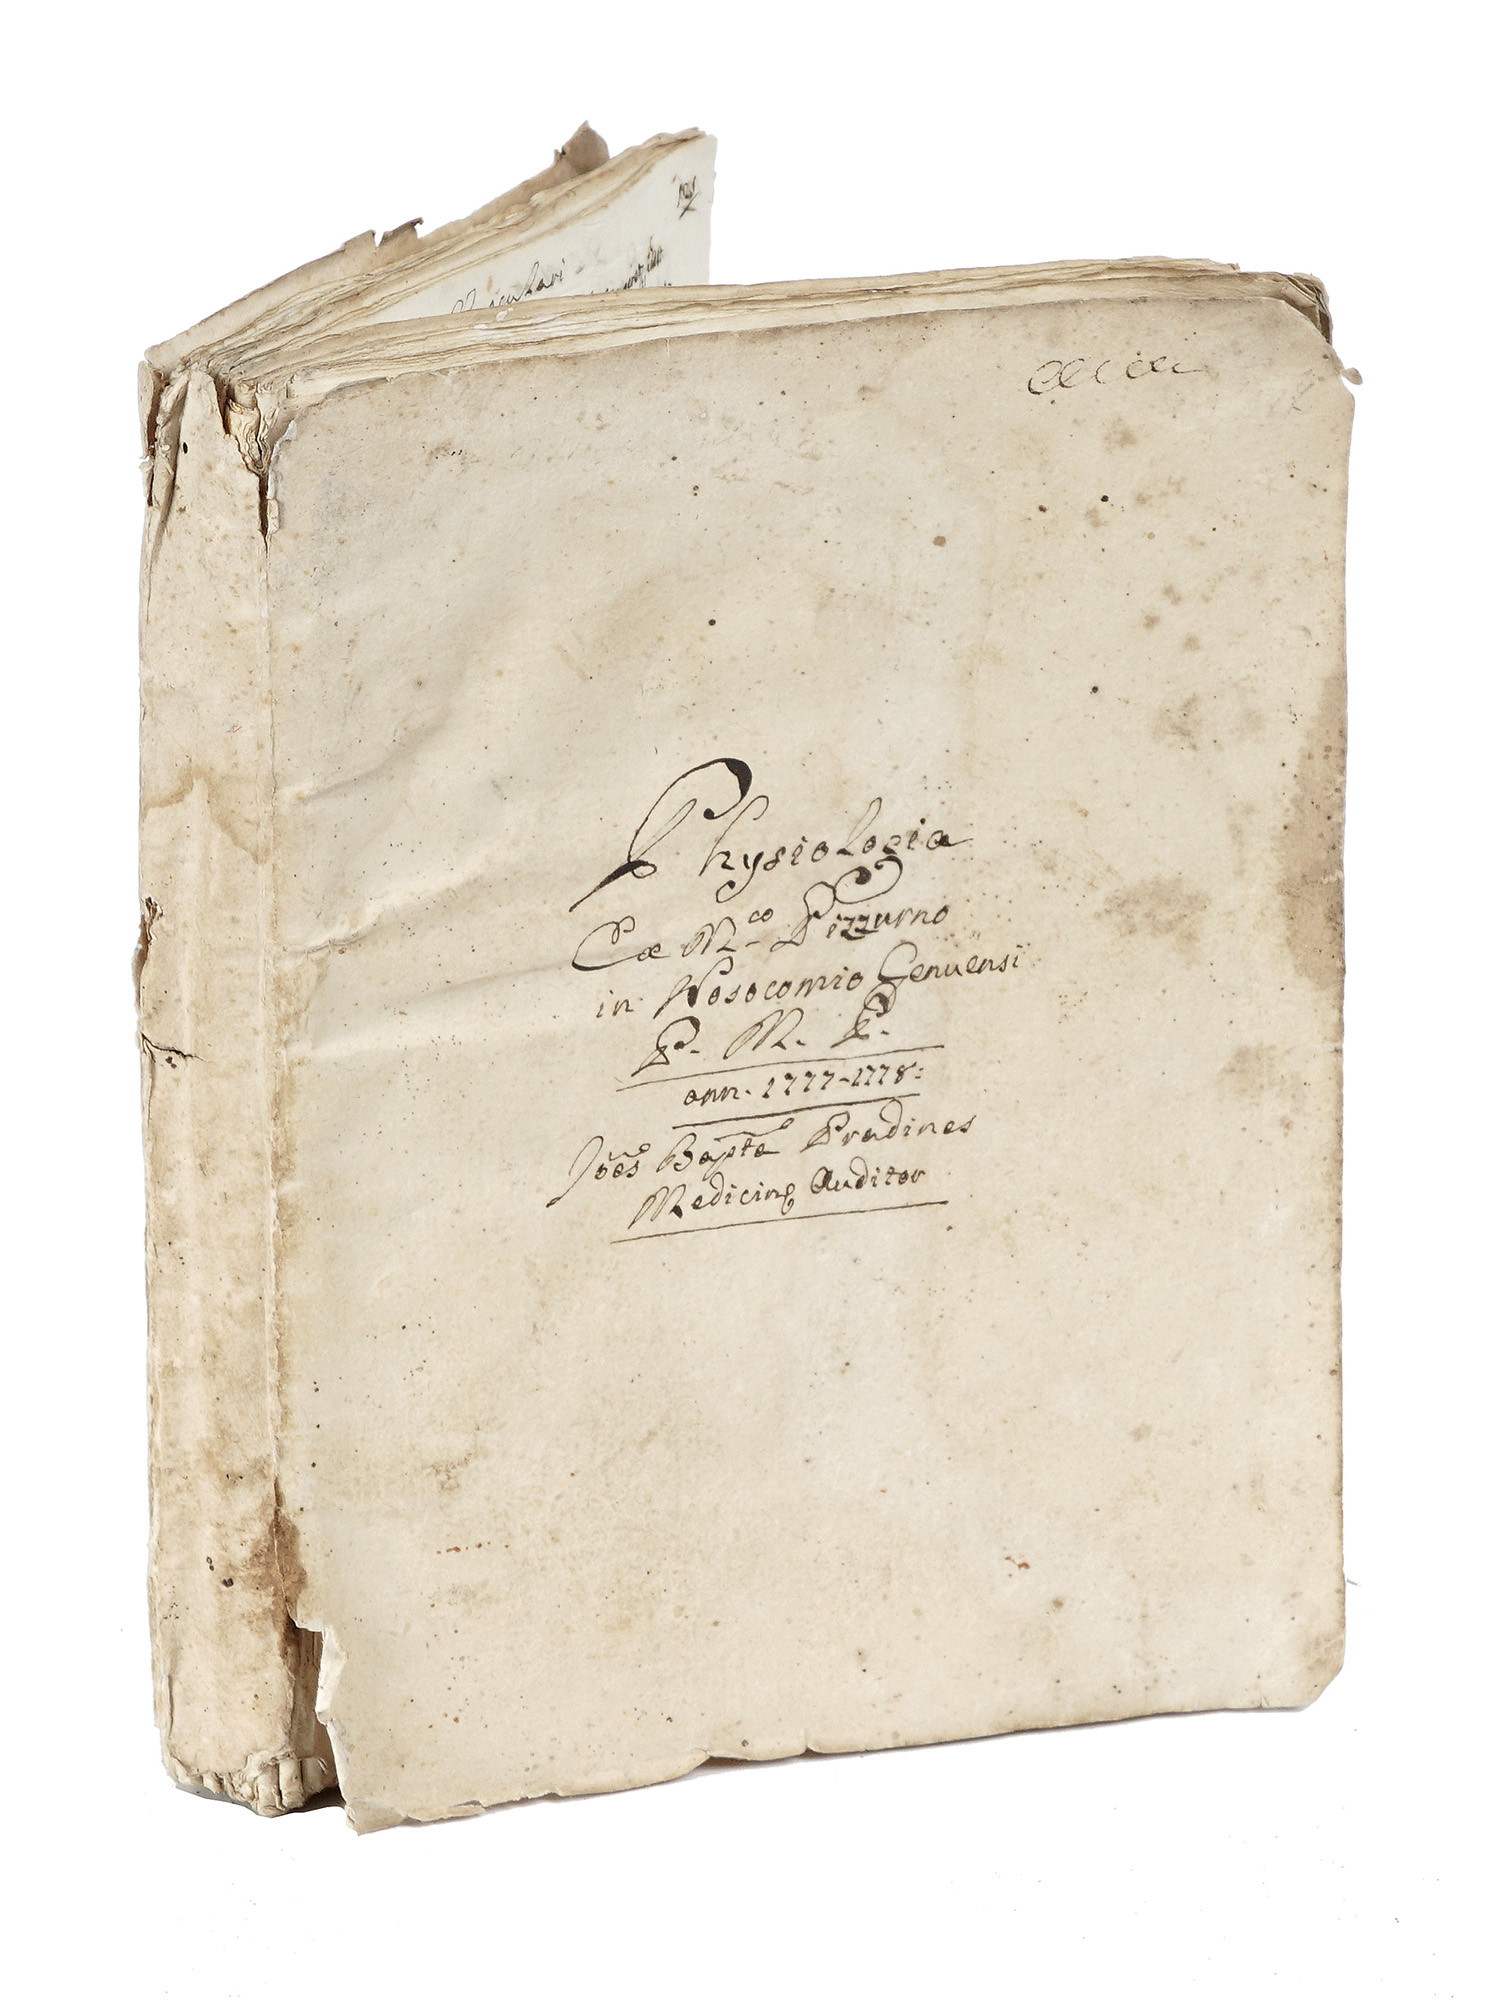 Physiologia
Cæ M.co Pizzurno
in Nosocomio Genuensi
P. M. P.
ann. 1777-1778:
Joẽs Bapta Pradines
Medicinę Auditor